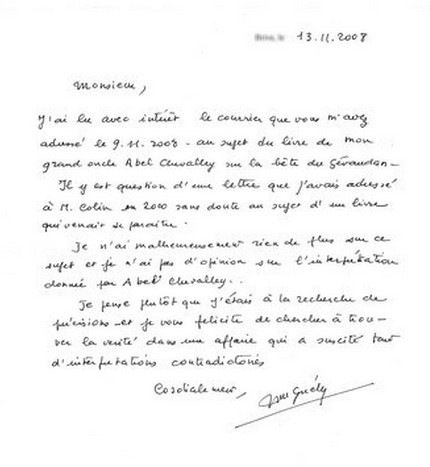 13.11.2008
Monsieur,
J'ai lu avec intérêt le courrier que vous m'avez
adressé le 9.11.2008 - au sujet du livre de mon
grand oncle Abel Chevalley sur la bête du Gévaudan -
Il y est question d'une lettre que j'avais adressé
à M. Colin en 2000 sans doute au sujet d'un livre
qui venait de paraître.
Je n'ai malheureusement rien de plus sur ce
sujet et je n'ai pas d'opinion sur l'interprétation
donnée par Abel Chevalley..
Je pense plutôt que j'étais à la recherche de
précisions et je vous félicite de chercher à trou-
ver la vérité dans une affaire qui a suscité tant
d'interprétations contradictoires
Cordialement,